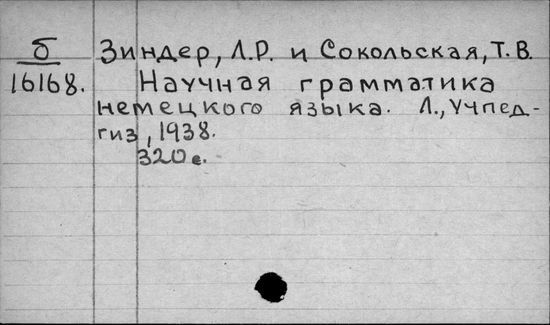 б Зиндер, Л.Р. и Сокольская, Т.В.
16168. Научная грамматика
немецкого языка. Л., Учпед-
гиз, 1938.
320 с.